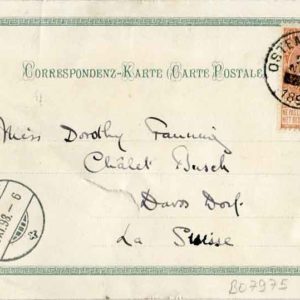 CORRESPONDENZ-KARTE (CARTE POSTALE
OSTEN
189
Miss Dorothy Fanning
Châlet Busch
Davos Dorf.
La Suisse
XI.98.-6
B07975